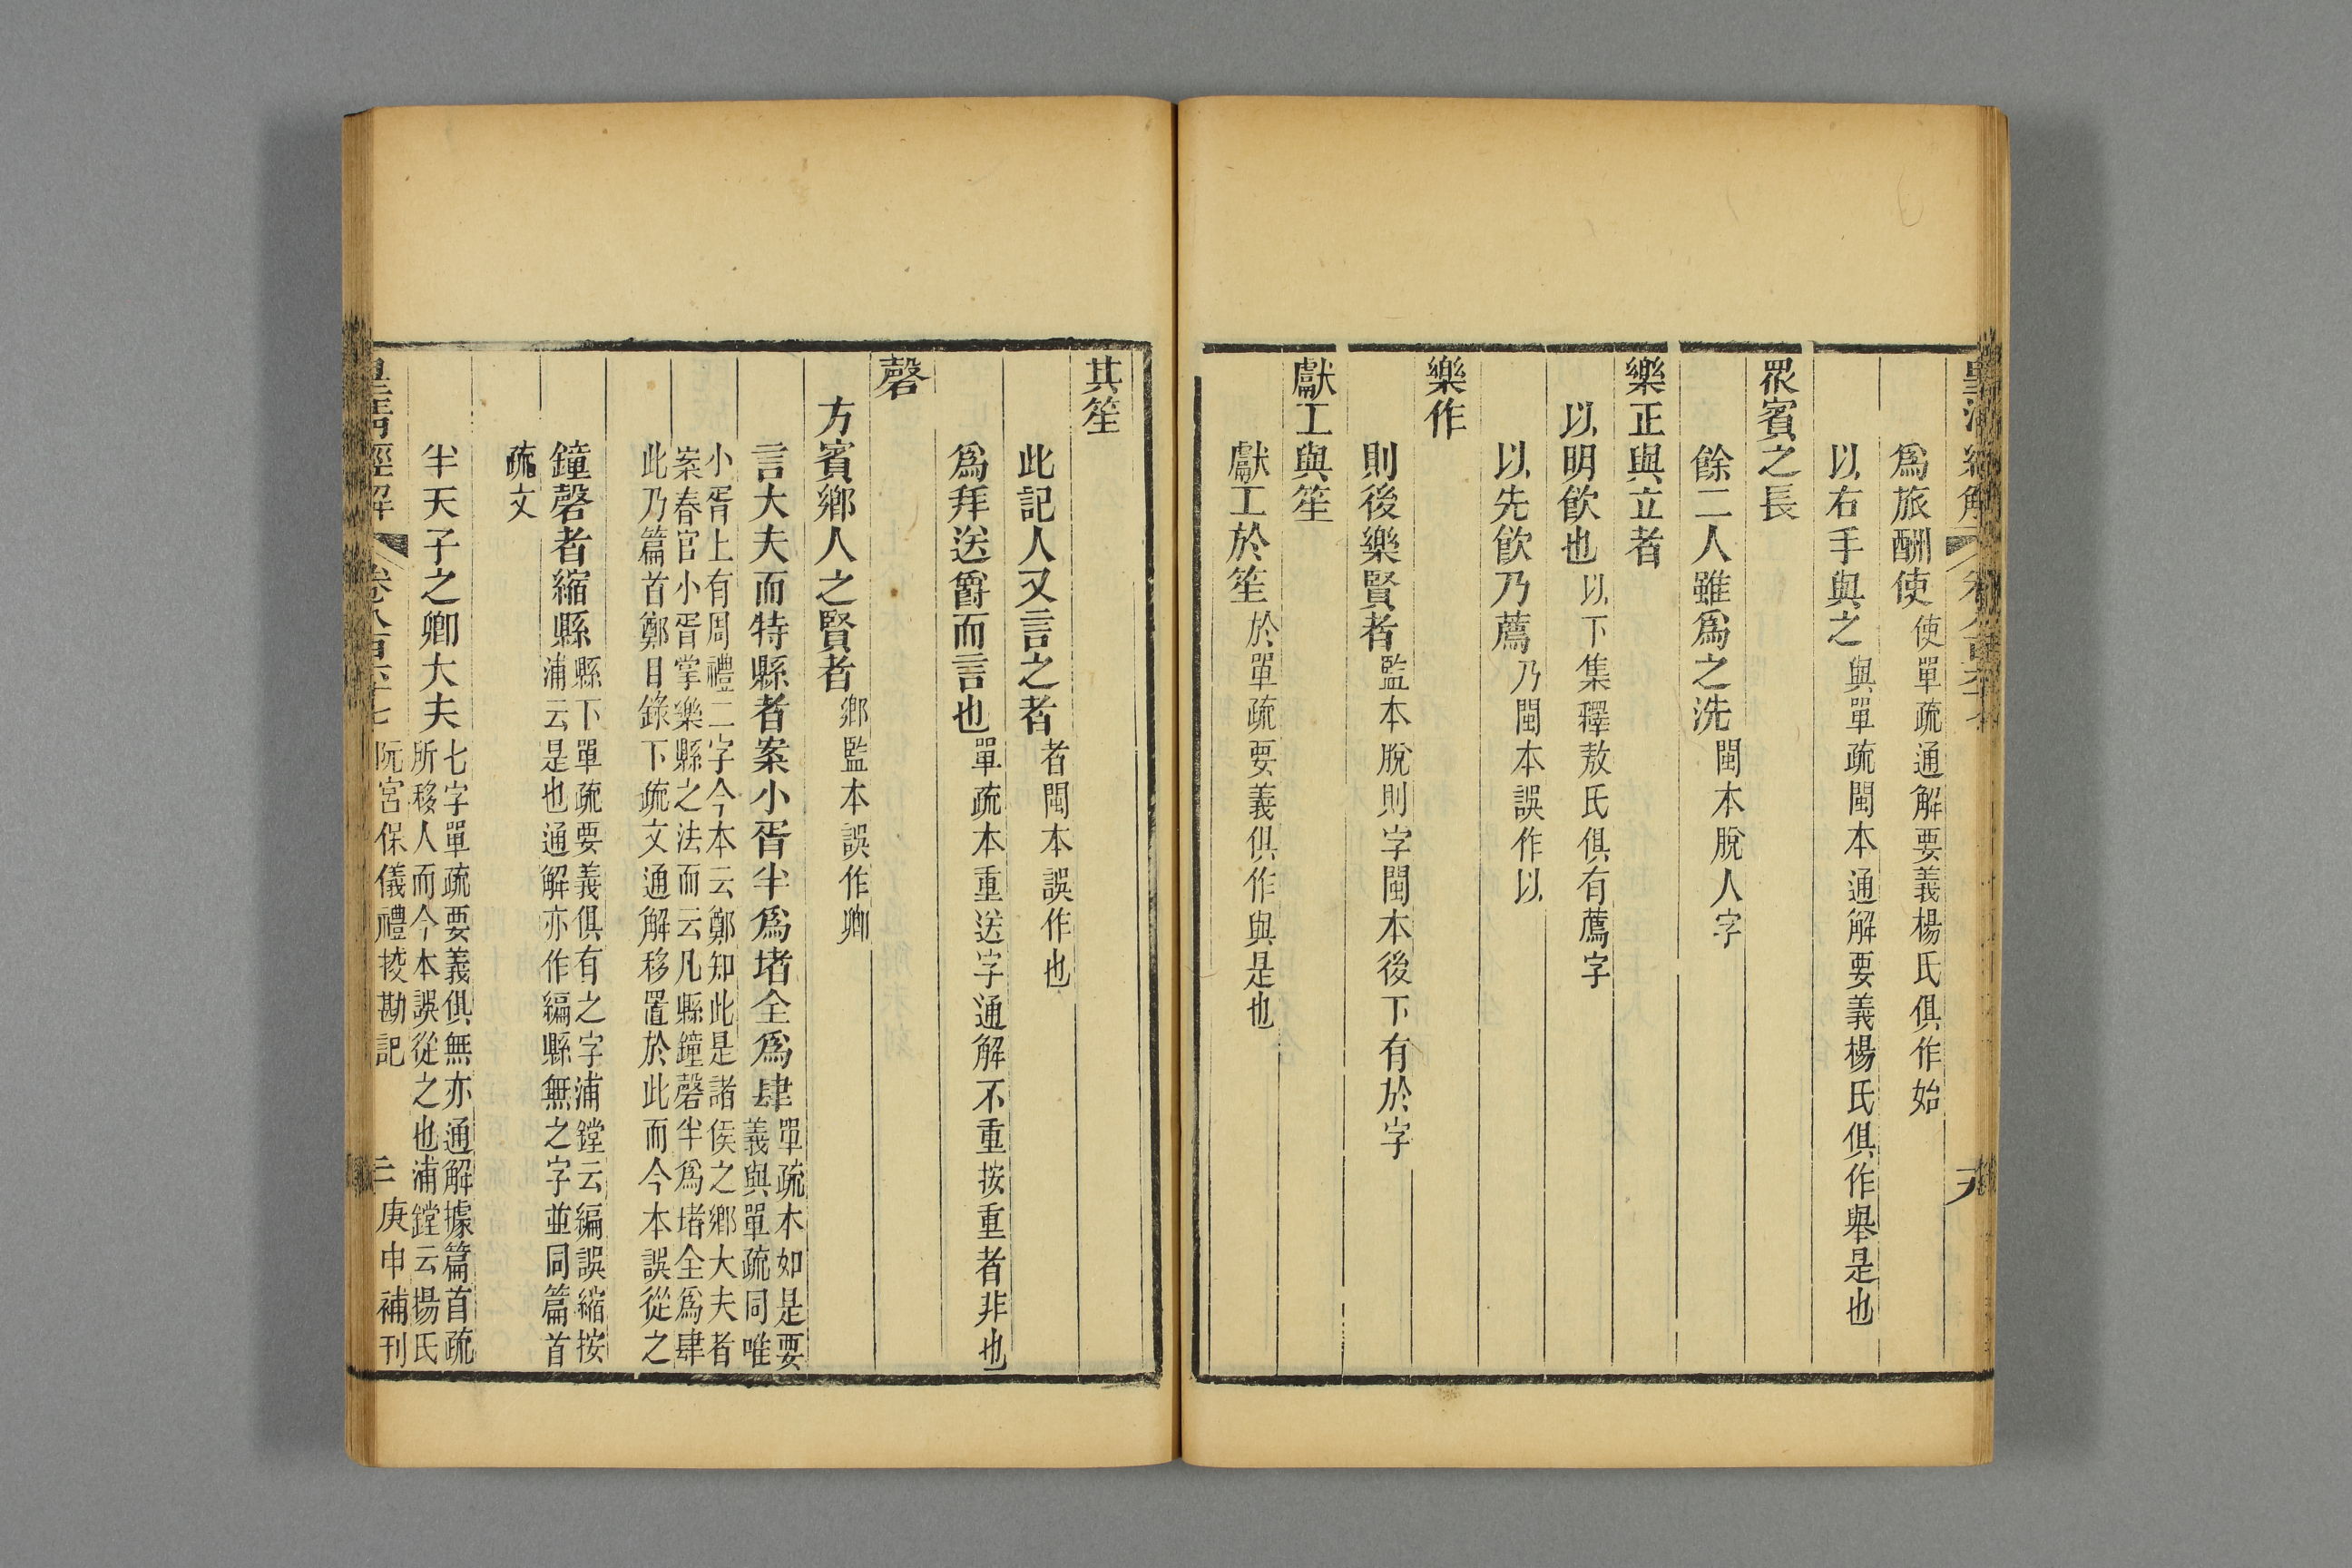 爲旅酬使使單疏通解要義楊氏俱作始
以右手與之與單疏閩本通解要義楊氏俱作舉是也
眾賓之長
餘二人雖爲之洗閩本脫人字
樂正與立者
以明飲也以下集釋敖氏俱有薦字
以先飲乃薦乃閩本誤作以
樂作
則後樂賢者監本脫則字閩本後下有於字
獻工與笙
獻工於笙於單疏要義俱作與是也
其笙
此記人又言之者者閩本誤作也
爲拜送爵而言也單疏本重送字通解不重按重者非也
磬
方賓鄉人之賢者鄉監本誤作卿
言大夫而特縣者案小胥半爲堵全爲肆單疏本如是要
義與單疏同唯
小胥上有周禮二字今本云鄭知此是諸侯之鄉大夫者
案春官小胥掌樂縣之法而云凡縣鐘磬半爲堵全爲肆
此乃篇首鄭目錄下疏文通解移置於此而今本誤從之
鐘磬者縮縣縣下單疏要義俱有之字浦鏜云編誤縮按
浦云是也通解亦作編縣無之字並同篇首
疏文
半天子之卿大夫七字單疏要義俱無亦通解據篇首疏
所移人而今本誤從之也浦鏜云楊氏
皇清經解 卷八百六十七 阮宮保儀禮挍勘記 庚申補刊